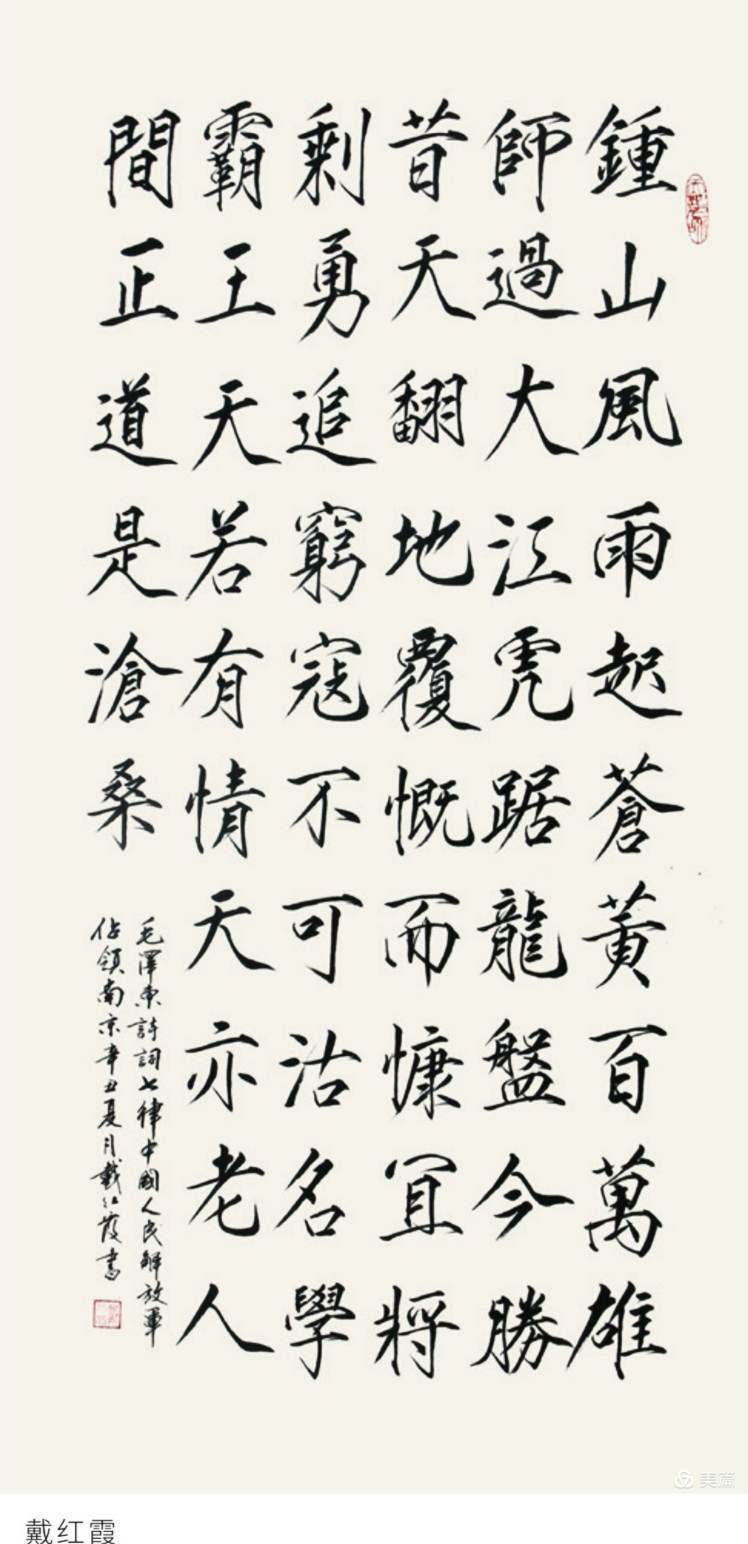 鍾山風雨起蒼黃百萬雄
師過大江虎踞龍盤今勝
昔天翻地覆慨而慷宜將
剩勇追窮寇不可沽名學
霸王天若有情天亦老人
間正道是滄桑
毛澤東詩詞七律中國人民解放軍
佔領南京辛丑夏月戴紅霞書
美篇
戴红霞